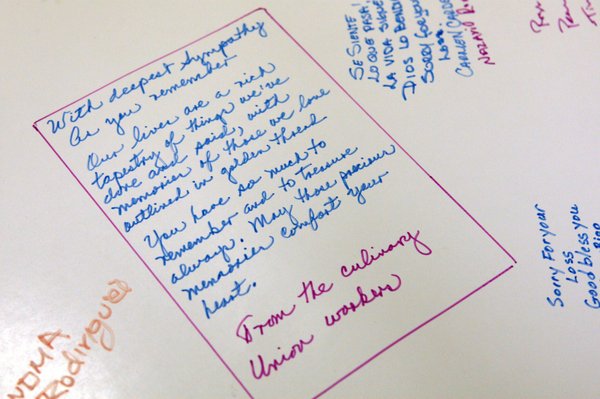 With deepest Sympathy
As you remember
Our lives are a rich
tapestry of things we've
done and said, with
memories of those we love
outlined in golden thread
You have so much to
remember and to treasure
always. May those precious
memories comfort your
heart.
From the culinary
Union workers
SE SIENTE
LO QUE PASA!
LA VIDA SIGUE
DIOS LO BENDI
Sorry for your
Loss
CARMEN
Sorry For your
Loss
God bless you
Rodriguez